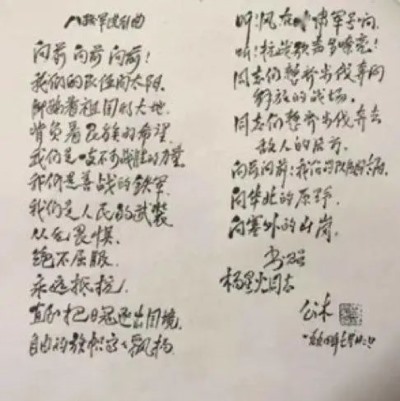 八路军进行曲
向前 向前 向前!
我们的队伍向太阳,
脚踏着祖国的大地,
背负着民族的希望,
我们是一支不可战胜的力量
我们是善战的铁军
我们是人民的武装
从无畏惧,
绝不屈服,
永远抵抗,
直到把日寇逐出国境,
自由的旗帜高高飘扬.
听!风在呼啸军号响,
听!抗战歌声多嘹亮!
同志们整齐步伐奔向
解放的战场,
同志们整齐步伐奔去
敌人的后方,
向前向前!我们的队伍向太阳,
向华北的原野,
向塞外的山岗.
杨星火同志
公木